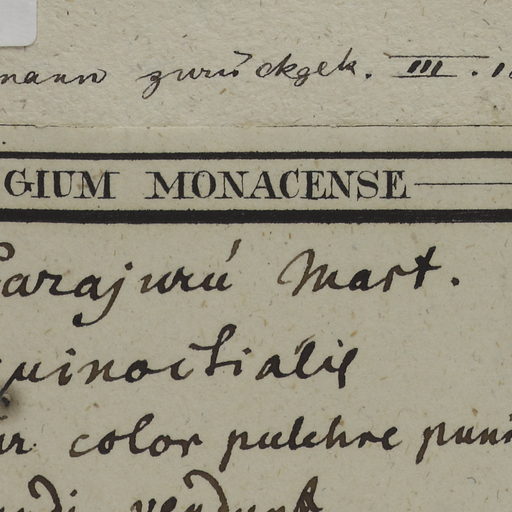 mann zurückgek. III.
GIUM MONACENSE
Carajurú Mart.
quinoctialis
ur color pulchre puni
undi vendunt